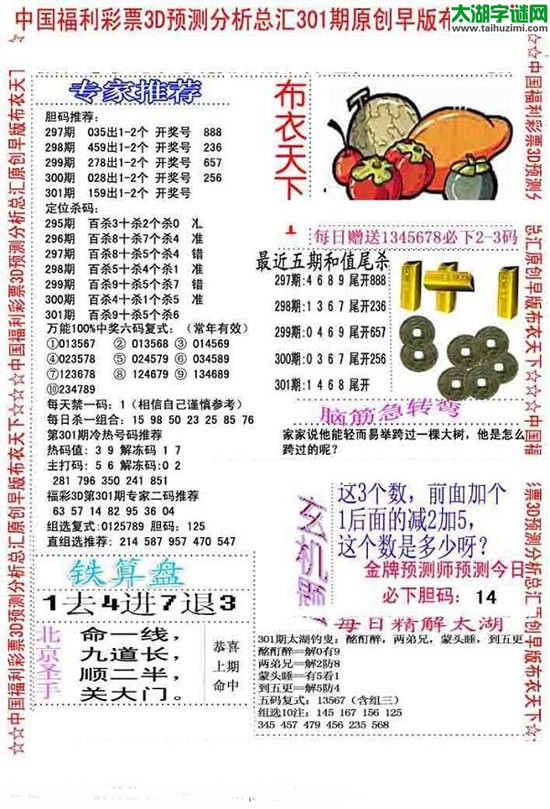 太湖字谜网
www.taihuzimi.com
中国福利彩票3D预测分析总汇301期原创早版布
专家推荐
胆码推荐:
297期 035出1-2个 开奖号 888
298期 459出1-2个 开奖号 236
299期 278出1-2个 开奖号 657
300期 028出1-2个 开奖号 256
301期 159出1-2个 开奖号
定位杀码:
295期 百杀3十杀2个杀0
296期 百杀8十杀7个杀4 准
297期 百杀8十杀5个杀4 错
298期 百杀4十杀9个杀4 准
299期 百杀5十杀4个杀7 错
300期 百杀4十杀1个杀5 准
301期 百杀9十杀5个杀6
万能100%中奖六码复式:(常年有效)
①013567 ②013568 ③014569
④023578 ⑤024579 ⑥034589
⑦123678 ⑧124679 ⑨134689
⑩234789
每天禁一码:1(相信自己谨慎参考)
每日杀一组合:15 98 50 23 25 85 76
第301期冷热号码推荐
热码值:3 9 解冻码 1 7
主打码:5 6 解冻码:0 2
281 796 350 241 851
福彩3D第301期专家二码推荐
63 57 14 82 95 36 04
组选复式:0125789 胆码:125
直组选推荐:214 587 957 470 547
铁算盘
1去4进7退3
北京圣手
命一线,
九道长,
顺二半,
关大门。
恭喜
上期
命中
布衣天下
每日赠送1345678必下2-3码
最近五期和值尾杀
297期:4 6 8 9 尾开888
298期:1 3 6 7 尾开236
299期:0 4 6 9 尾开657
300期:0 3 6 7 尾开256
301期:1 4 6 8 尾开
脑筋急转弯
家家说他能轻而易举跨过一棵大树,他是怎么
跨过的呢?
玄机题
这3个数,前面加个
1后面的减2加5,
这个数是多少呀?
金牌预测师预测今日
必下胆码: 14
每日精解太湖
301期太湖钓叟:酩酊醉,两弟兄,蒙头睡,到五更
酩酊醉==解0有9
两弟兄==解2防8
蒙头睡==有5看1
到五更==解5防4
五码复式:13567(含组三)
组选10注:145 167 156 125
345 457 479 456 235 568
☆☆中国福利彩票3D预测分析总汇原创早版布衣天下☆☆☆中国福利彩票3D预测分析总汇原创早版布衣天下
☆☆中国福利彩票3D预测
总汇原创早版布衣天下☆☆☆中国福
票3D预测分析总汇原创早版布衣天下☆☆